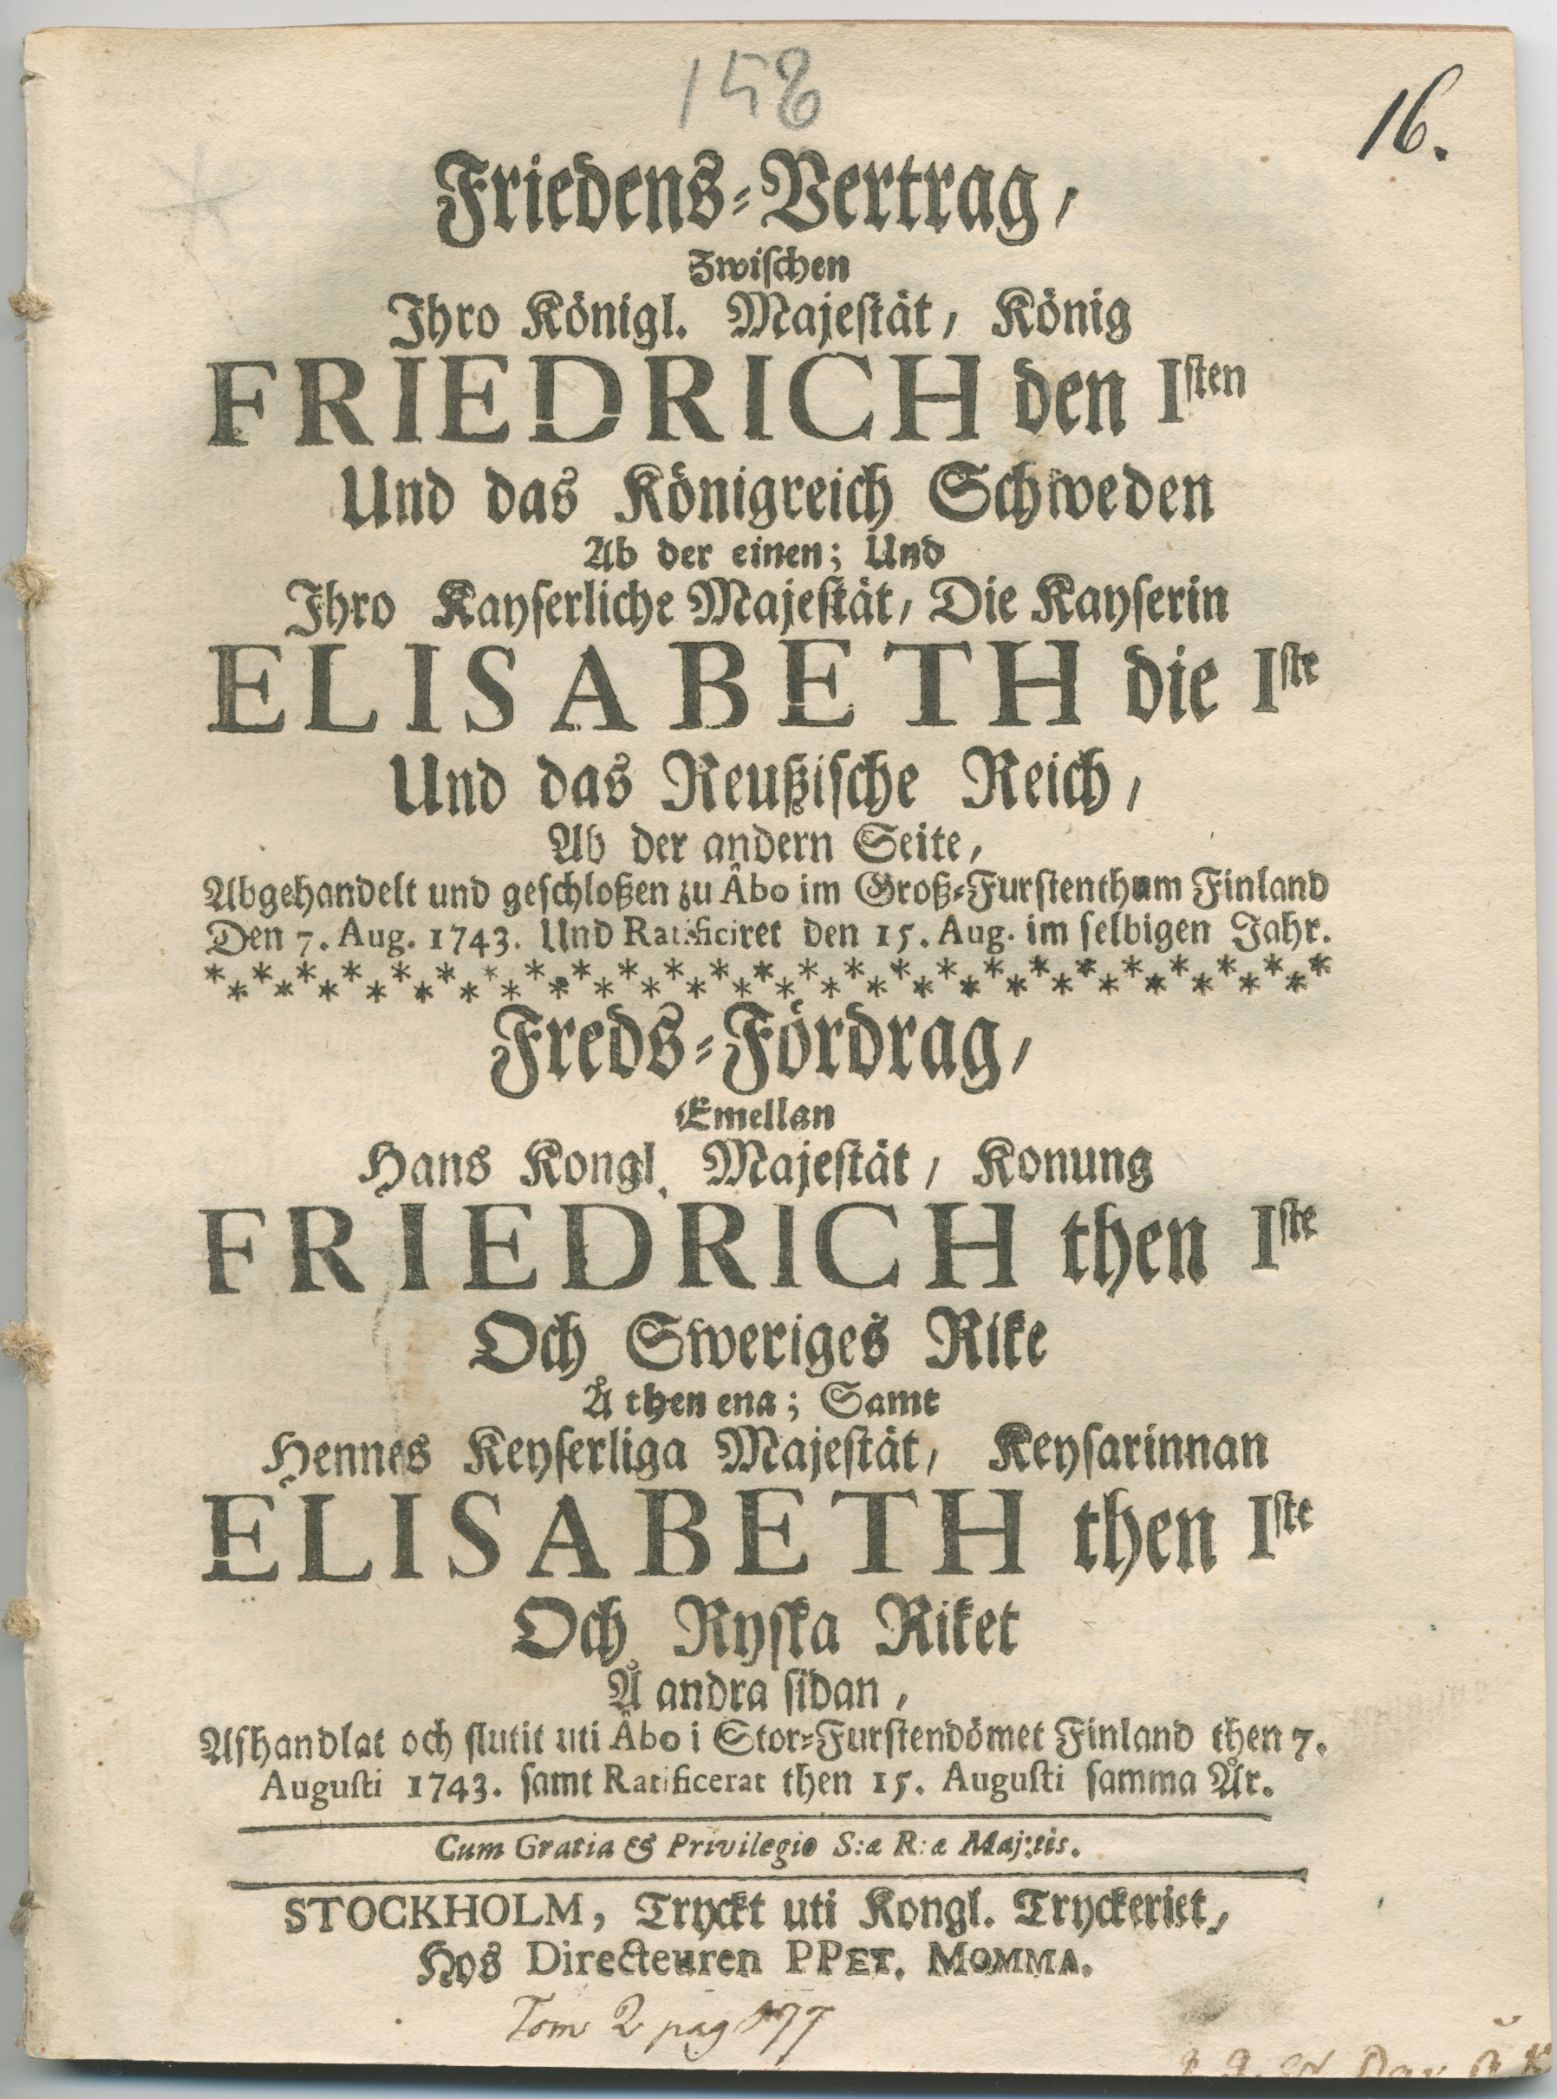 158
16.
Friedens-Vertrag,
Zwischen
Ihro Königl. Majestät, König
FRIEDRICH den Isten
Und das Königreich Schweden
Ab der einen; Und
Ihro Kayserliche Majestät, Die Kayserin
ELISABETH die Iste
Und das Reußische Reich,
Ab der andern Seite,
Abgehandelt und geschloßen zu Âbo im Groß-Furstenthum Finland
Den 7. Aug. 1743. Und Ratificiret den 15. Aug. im selbigen Jahr.
Freds-Fördrag,
Emellan
Hans Kongl. Majestät, Konung
FRIEDRICH then Iste
Och Sweriges Rike
Å then ena; Samt
Hennes Keyserliga Majestät, Keysarinnan
ELISABETH then Iste
Och Ryska Riket
Å andra sidan,
Afhandlat och slutit uti Åbo i Stor-Furstendömet Finland then 7.
Augusti 1743. samt Ratificerat then 15. Augusti samma År.
Cum Gratia & Privilegio S:æ R:æ Maj:tis.
STOCKHOLM, Tryckt uti Kongl. Tryckeriet,
Hos Directeuren PPET. MOMMA.
Tom 2 pag 177